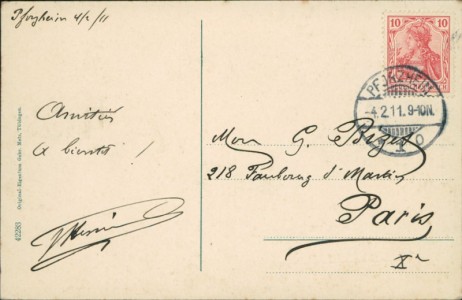 Pforzheim 4/2/11
10 10
PFORZHEIM
-4.2.11.9-10N.
Amitiés
à bientôt !
Mon G.
218 Faubourg St Martin
Paris
Xe
42283 Original-Eigentum Gebr. Metz, Tübingen.